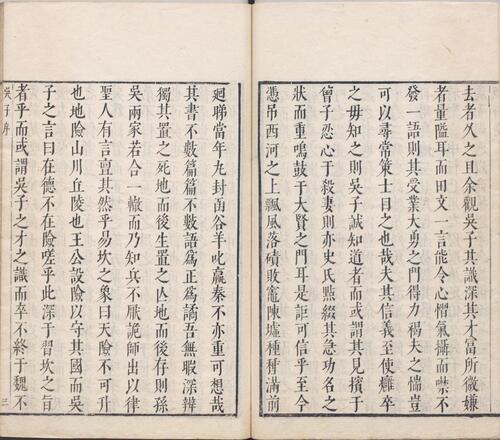 去者久之且余觀吳子其識深其才富所微嫌
者量隘耳而田文一言能令心㦗氣攝而噤不
發一語則其受業大勇之門得力褐夫之惴豈
可以尋常策士目之也哉夫其信義至使癰卒
之母知之則吳子誠知道者而或謂其見擯于
曾子忍心于殺妻則亦史氏點綴其急功名之
狀而重鳴鼓于大賢之門耳是詎可信乎至今
憑吊西河之上飄風落磧敗竈陳墟種種滿前
廻睇當年九封函谷羊叱嬴秦不亦重可想哉
其書不數篇篇不數語爲正爲譎吾無暇深辨
獨其置之死地而後生置之亾地而後存則孫
吳兩家若合一轍而乃知兵不厭詭師出以律
聖人有言亶其然乎易坎之象曰天險不可升
也地險山川丘陵也王公設險以守其國而吳
子之言曰在德不在險嗟乎此深于習坎之旨
者乎而或謂吳子之才之識而卒不終于魏不
吳子序
三